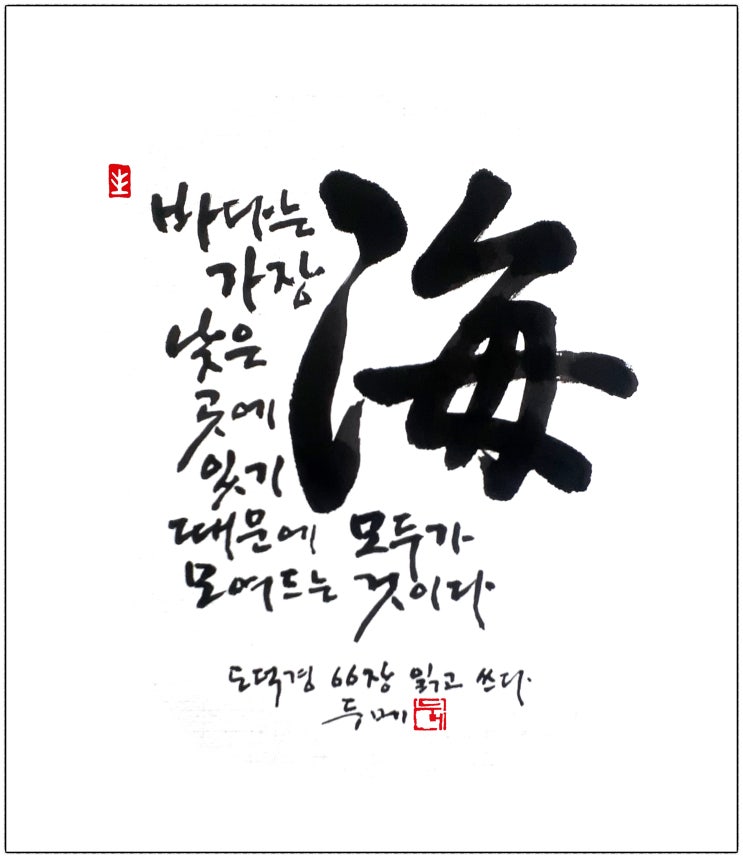 海
바다는
가장
낮은
곳에
있기
때문에 모두가
모여드는 것이다
도덕경 66장 읽고 쓰다.
두메